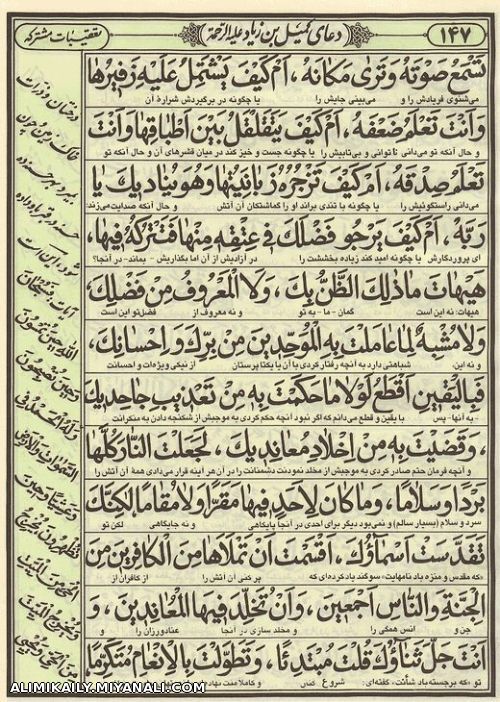 ١٤٧
دعای کمیل بن زیاد علیه الرحمة
تعقیبات مشترکه
تَسْمَعُ صَوْتَهُ وَتَرىٰ مَكَانَهُ، اَمْ كَيْفَ يَشْتَمِلُ عَلَيْهِ زَفيرُهَا
می‌شنوی فریادش را و می‌بینی جایش را یا چگونه در برگیردش شرارهٔ آن
وَاَنْتَ تَعْلَمُ ضَعْفَهُ، اَمْ كَيْفَ يَتَقَلْقَلُ بَيْنَ اَطْبَاقِهَا وَاَنْتَ
و حال آنکه تو می‌دانی ناتوانی و بی‌تابیش را یا چگونه جست و خیز کند در میان قشرهای آن و حال آنکه تو
تَعْلَمُ صِدْقَهُ، اَمْ كَيْفَ تَزْجُرُهُ زَبَانِيَتُهَا وَهُوَ يُنَاديكَ يَا
می‌دانی راستگوئیش را یا چگونه با تندی براند او را گماشتگان آن آتش و حال آنکه صدایت می‌زند:
رَبَّهُ، اَمْ كَيْفَ يَرْجُو فَضْلَكَ في عِتْقِهِ مِنْهَا فَتَتْرُكُهُ فيهَا،
ای پروردگارش یا چگونه امید کند زیاده بخششت را در آزادیش از آن اما بگذاریش - بماند - در آنجا؟
هَيْهَاتَ مَا ذٰلِكَ الظَّنُّ بِكَ، وَلَا الْمَعْرُوفُ مِنْ فَضْلِكَ،
هیهات: نه این است گمان - ما - به تو و نه معروف از فضل تو این است
وَلَا مُشْبِهٌ لِمَا عَامَلْتَ بِهِ الْمُوَحِّدينَ مِنْ بِرِّكَ وَاِحْسَانِكَ،
و نه این شباهتی دارد به آنچه رفتار کردی با آن با یکتا پرستان از نیکی ویژه‌ات و احسانت
فَبِالْيَقينِ اَقْطَعُ لَوْ لَا مَا حَكَمْتَ بِهِ مِنْ تَعْذيبِ جَاحِديكَ
- به آنها - پس با یقین و قطع می‌دانم که اگر نبود آنچه حکم کردی به موجبش از شکنجه دادن به منکرانت
، وَقَضَيْتَ بِهِ مِنْ اِخْلَادِ مُعَانِديكَ، لَجَعَلْتَ النَّارَ كُلَّهَا
و آنچه فرمان حتم صادر کردی به موجبش از مخلد نمودنت دشمنانت را در آن هر آینه قرار می‌دادی همهٔ آن آتش را
بَرْدًا وَسَلَامًا، وَمَا كَانَ لِاَحَدٍ فيهَا مَقَرًّا وَلَا مُقَامًا لٰكِنَّكَ
سرد و سلام (بسیار سالم) و نمی‌بود دیگر برای احدی در آنجا پایگاهی و نه جایگاهی لکن تو
تَقَدَّسَتْ اَسْمَاؤُكَ، اَقْسَمْتَ اَنْ تَمْلَاَهَا مِنَ الْكَافِرينَ مِنَ
-که مقدس و منزه باد نامهایت- سوگند یاد کرده‌ای که پر کنی آن آتش را از کافران از
الْجِنَّةِ وَالنَّاسِ اَجْمَعينَ، وَاَنْ تُخَلِّدَ فيهَا الْمُعَانِدينَ، وَ
جن و انس همگی را و مخلد سازی در آنجا عنادورزان را و
اَنْتَ جَلَّ ثَنَاؤُكَ قُلْتَ مُبْتَدِئًا، وَتَطَوَّلْتَ بِالْاِنْعَامِ مُتَكَرِّمًا،
تو، -که برجسته باد شأنت، گفته‌ای: شروع کنان
ALIMIKAILY.MIYANALI.COM